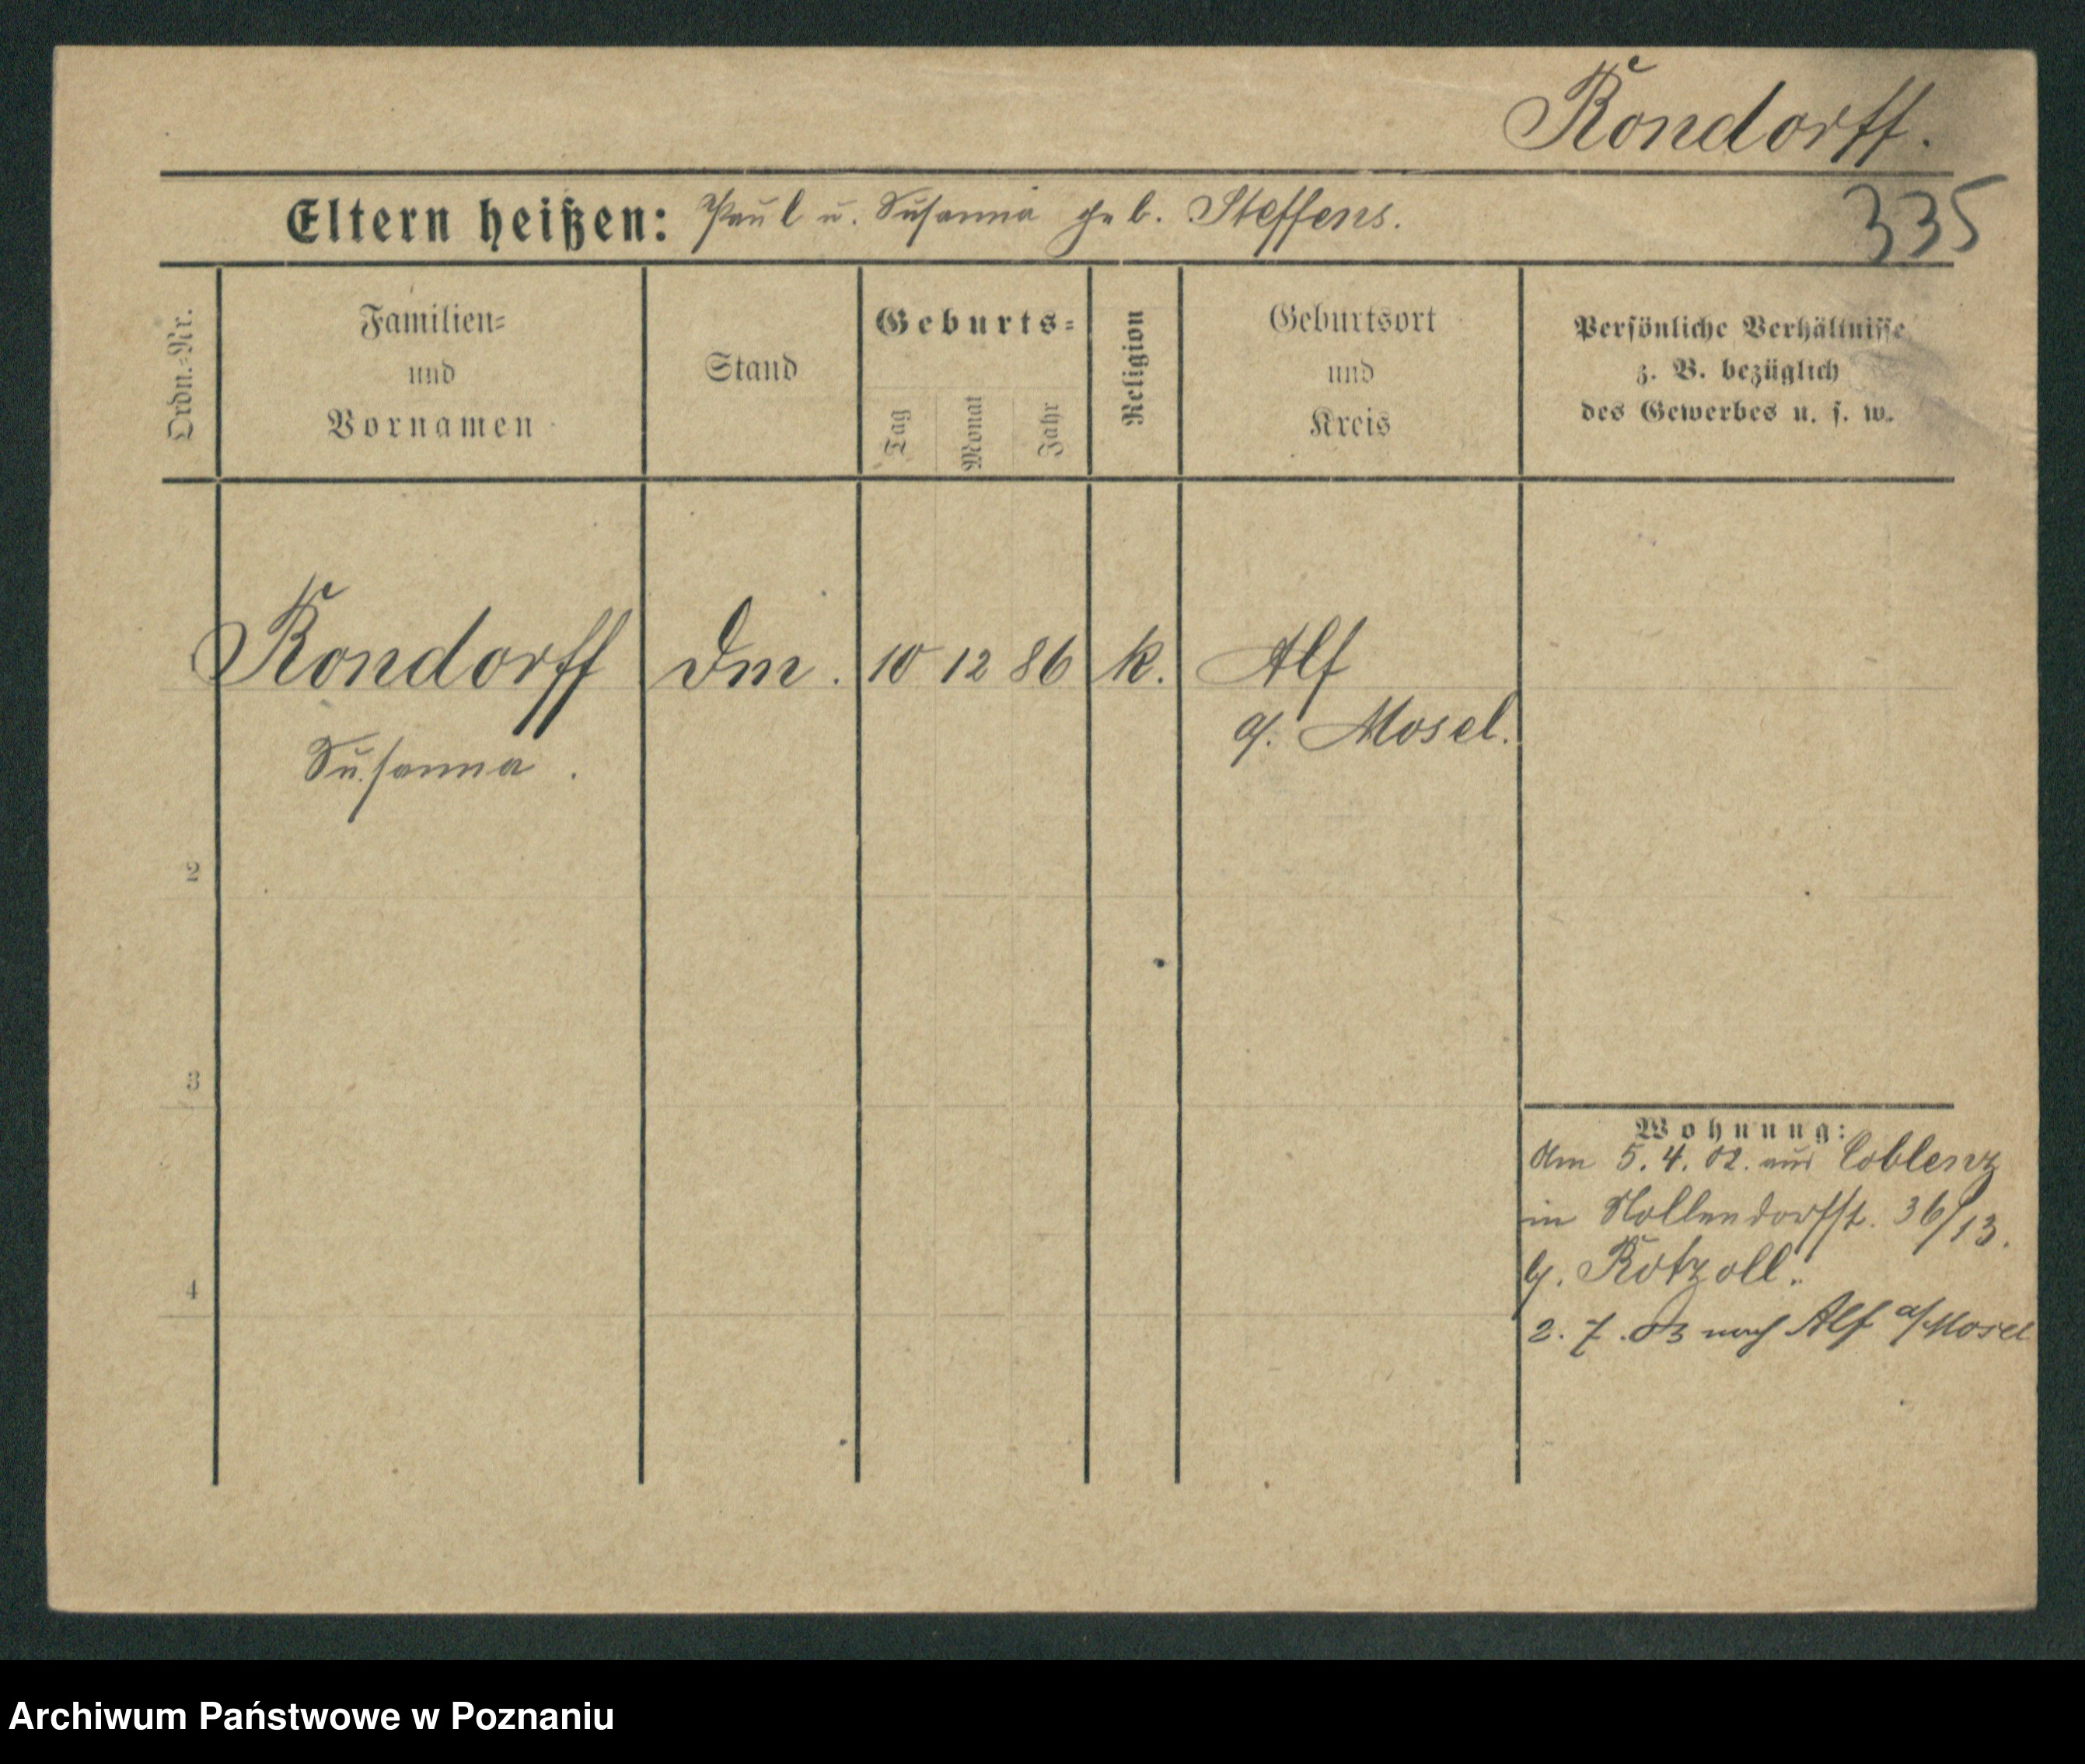 Rondorff.
335
Eltern heißen: Paul u. Susanna geb. Steffens.
Ordn.-Nr.
Familien-
und
Vornamen
Stand
Geburts-
Tag
Monat
Jahr
Religion
Geburtsort
und
Kreis
Persönliche Verhältnisse
z. B. bezüglich
des Gewerbes u. s. w.
Rondorff Dm. 10 12 86 k. Alf
a/. Mosel.
Susanna.
2
3
4
Wohnung:
Am 5. 4. 02. aus Coblenz
in Nollendorfst. 36/13.
b/. Rotzoll.
2. 7. 03 nach Alf a/Mosel
Archiwum Państwowe w Poznaniu